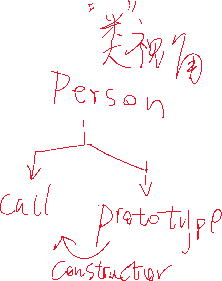 "类"视角
Person
call
prototype
constructor